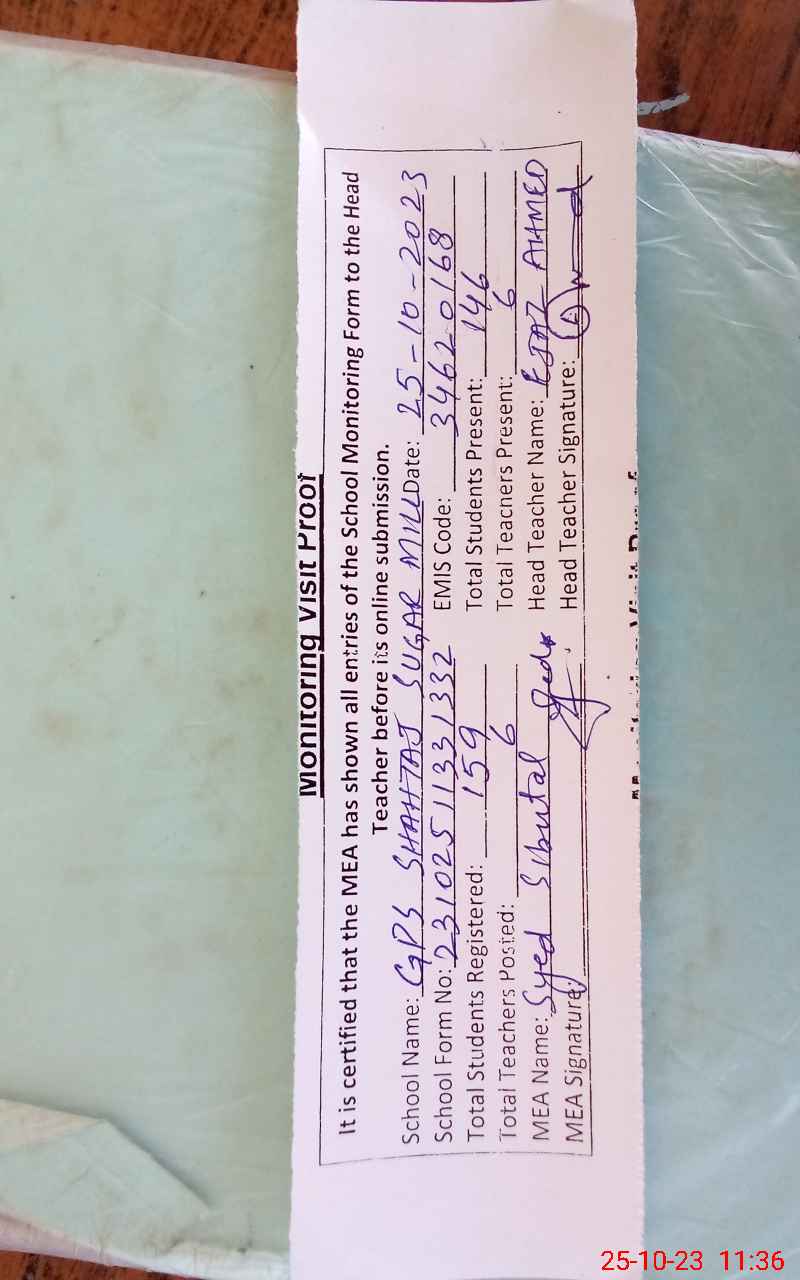 Monitoring Visit Proof
It is certified that the MEA has shown all entries of the School Monitoring Form to the Head
Teacher before its online submission.
School Name: GPS SHAHTAJ SUGAR MILL Date: 25-10-2023
School Form No: 231025113331332 EMIS Code: 34620168
Total Students Registered: 159 Total Students Present: 146
Total Teachers Posted: 6 Total Teachers Present: 6
MEA Name: Syed Sibutal Head Teacher Name: EJAZ AHMED
MEA Signature: Head Teacher Signature:
25-10-23 11:36